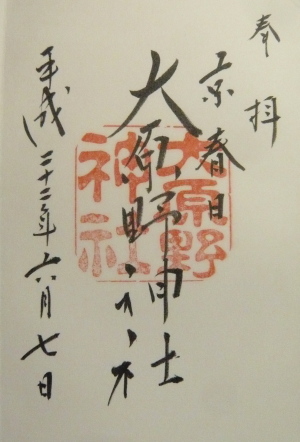 奉拝
京春日
大原野神社
大原野
神社
平成二十二年六月七日